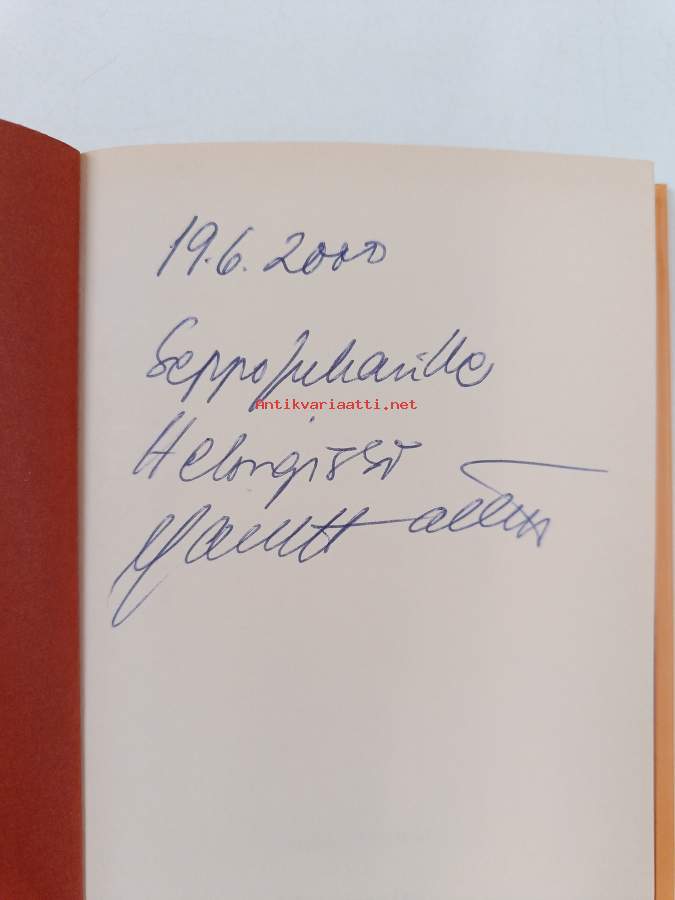 19.6.2000
Seppo Juhanille
Antikvariaatti.net
Helsingissä